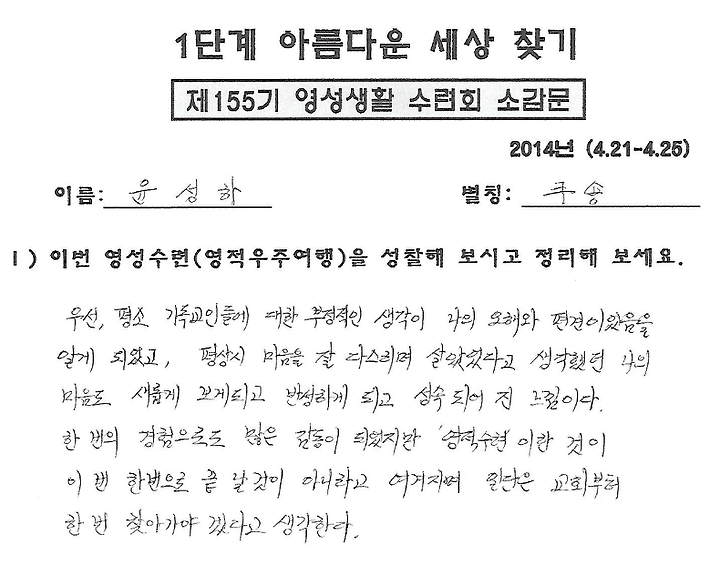 1단계 아름다운 세상 찾기
제155기 영성생활 수련회 소감문
2014년 (4.21-4.25)
이름: 윤성하 별칭: 푸송
1) 이번 영성수련(영적우주여행)을 성찰해 보시고 정리해 보세요.
우선, 평소 기독교인들에 대한 부정적인 생각이 나의 오해와 편견이었음을
알게 되었고, 평상시 마음을 잘 다스리며 살았었다고 생각했던 나의
마음도 새롭게 보게되고 반성하게 되고 성숙 되어 진 느낌이다.
한 번의 경험으로도 많은 감동이 되었지만 '영적수련'이란 것이
이 번 한번으로 끝 날 것이 아니라고 여겨지며 일단은 교회부터
한 번 찾아가야 겠다고 생각한다.